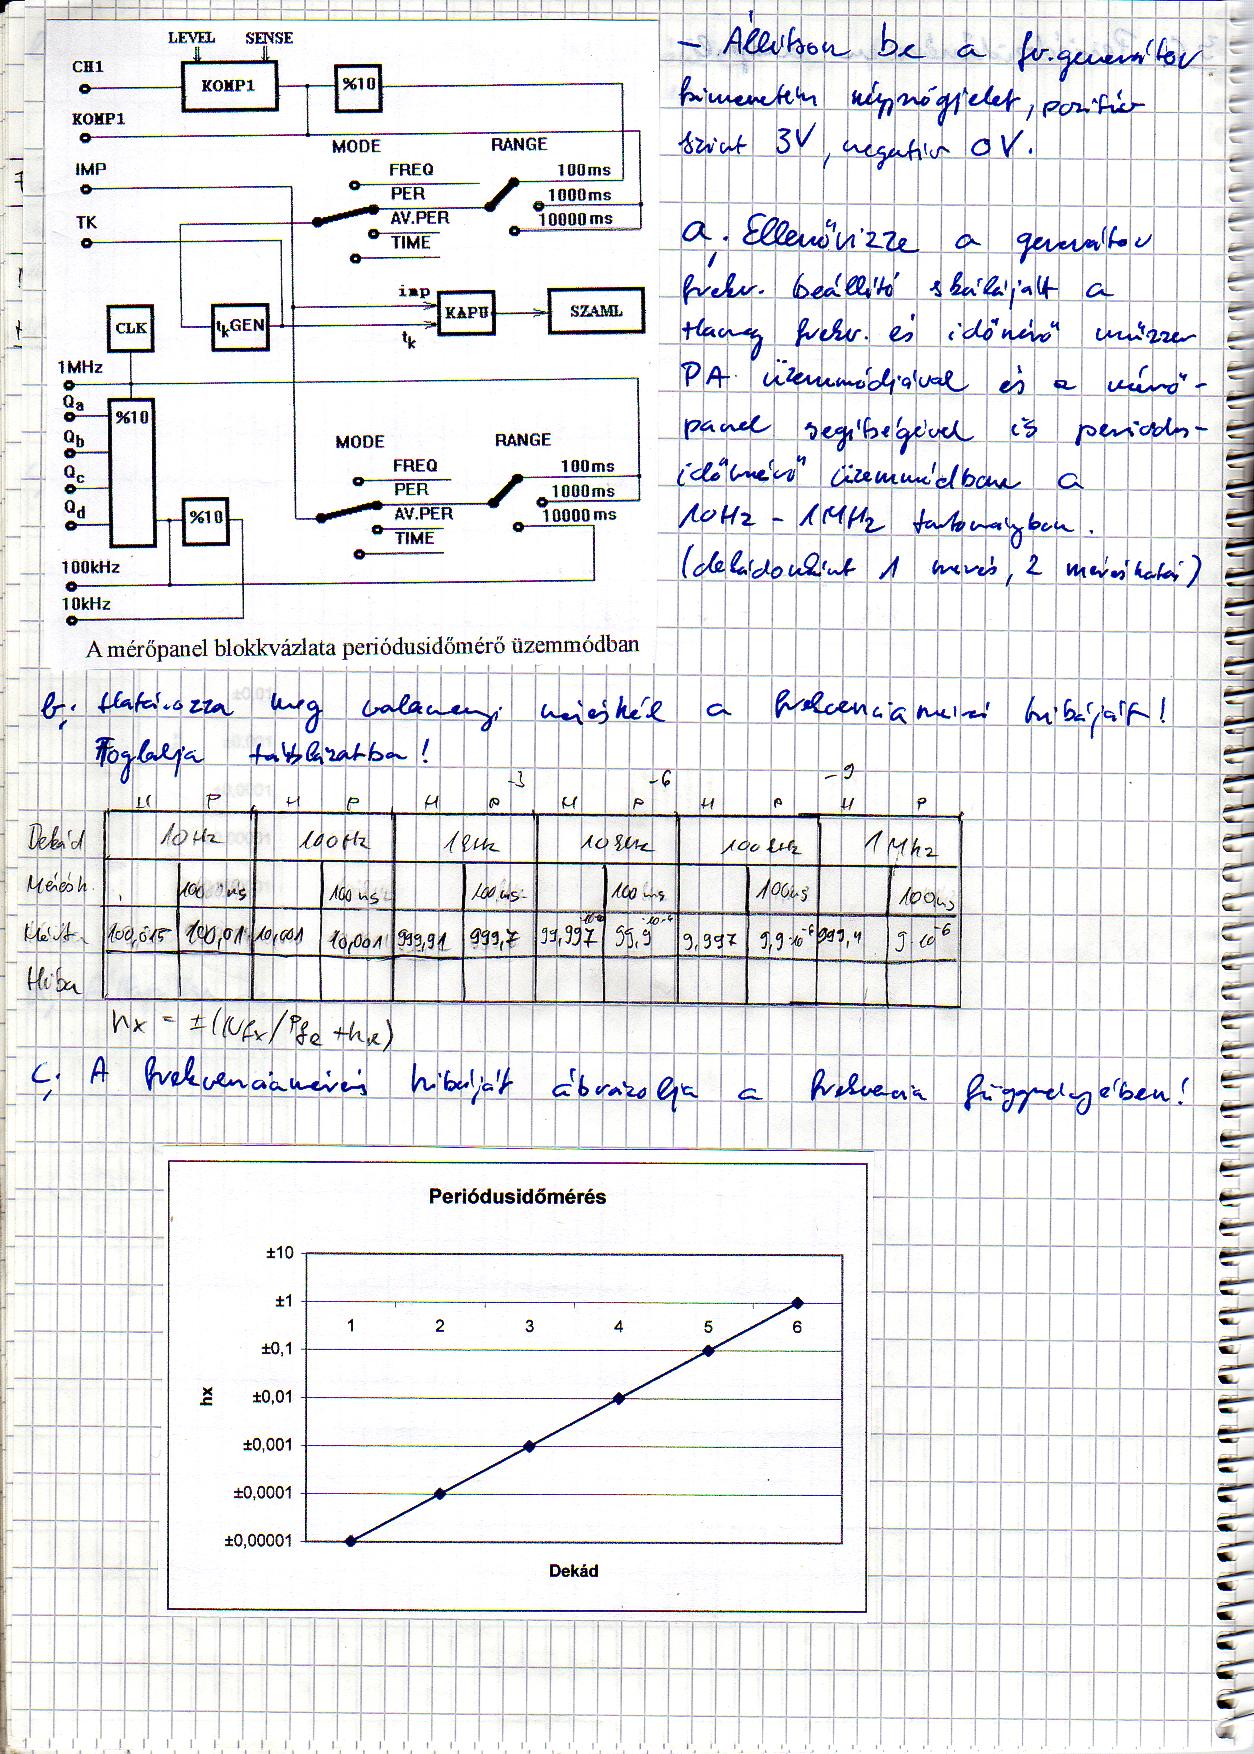 LEVEL SENSE
CH1
KOMP1
%10
KOMP1
MODE RANGE
IMP
FREQ
100ms
PER
1000ms
TK
AV.PER
10000ms
TIME
imp
CLK
tkGEN
KAPU
SZAML
tk
1MHz
Qa
%10
Qb
MODE RANGE
Qc
FREQ
100ms
PER
1000ms
Qd
%10
AV.PER
10000ms
TIME
100kHz
10kHz
A mérőpanel blokkvázlata periódusidőmérő üzemmódban
- Állítson be a fv.generátor
kimenetén négyszögjelet, pozitív
szint 3V, negatív 0V.
a, Ellenőrizze a generátor
frekv. beállító skáláját a
Hameg frekv. és időmérő műszer
PA üzemmódjával és a mérő-
panel segítségével is periódus-
időmérő üzemmódban a
10Hz - 1MHz tartományban.
(dekádonként 1 mérés, 2 méréshatár)
b, Határozza meg valamennyi mérésnél a frekvenciamérés hibáját!
Foglalja táblázatba!
-3 -6 -9
H P H P H P H P H P H P
Dekád 10Hz 100Hz 1kHz 10kHz 100kHz 1Mhz
Mérésh. 100ms 100ms 100ms 100ms 100ms 100ms
100,015 100,01 10,001 10,001 999,91 999,7 99,997 99,9 9,997 9,9·10⁻⁶ 999,4 9·10⁻⁶
Hiba
hx = ±(Nfx/Pfe + he)
c, A frekvenciamérés hibáját ábrázolja a frekvencia függvényében!
Periódusidőmérés
±10
±1
1 2 3 4 5 6
±0,1
hx
±0,01
±0,001
±0,0001
±0,00001
Dekád